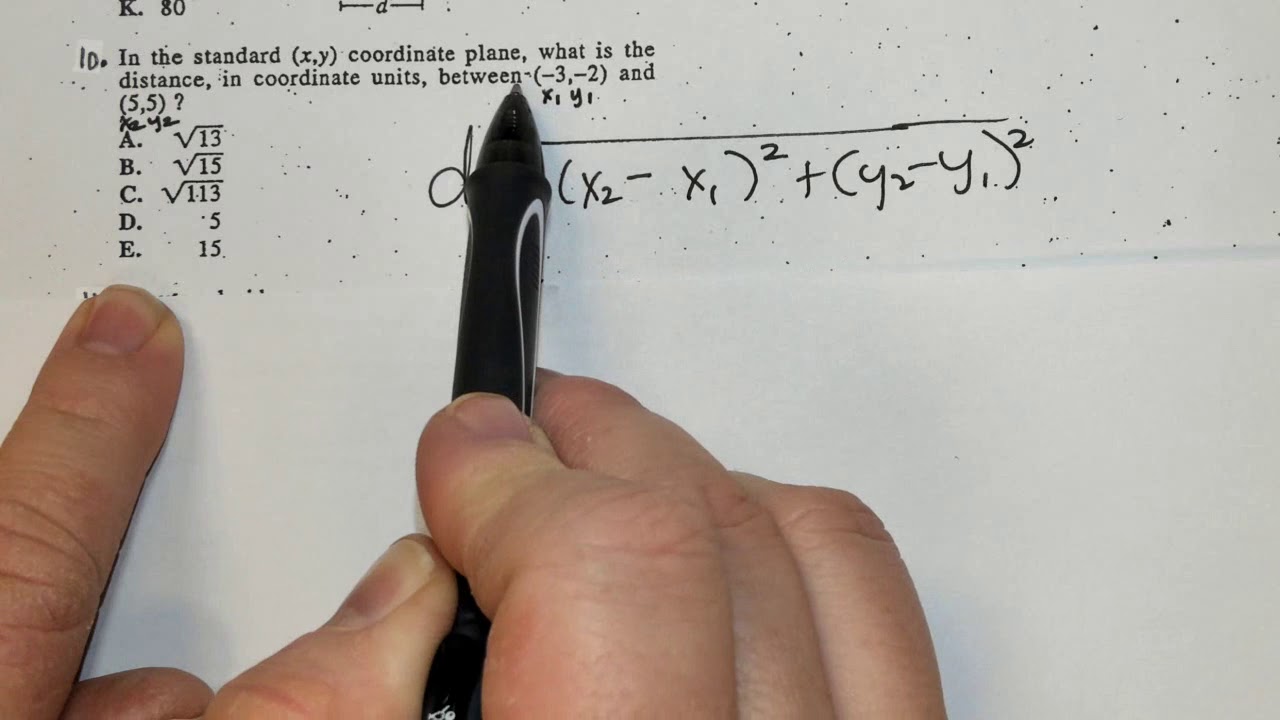 K. 80
d
10. In the standard (x,y) coordinate plane, what is the
distance, in coordinate units, between (−3,−2) and
x₁ y₁
(5,5) ?
x₂ y₂
A. √13
B. √15
C. √113
D. 5
E. 15
d (x₂ − x₁)² + (y₂ − y₁)²